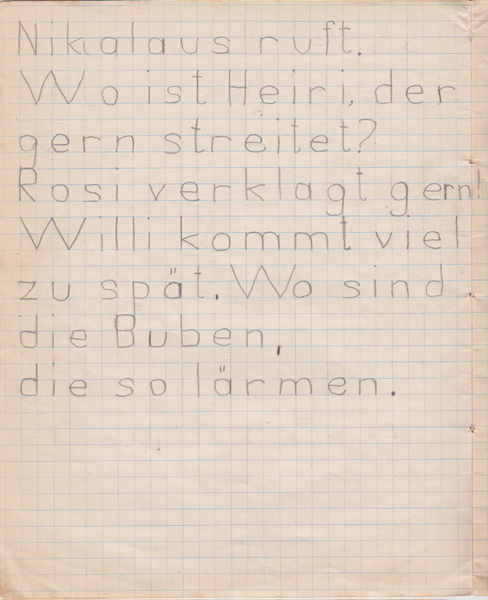 Nikolaus ruft.
Wo ist Heiri, der
gern streitet?
Rosi verklagt gern!
Willi kommt viel
zu spät. Wo sind
die Buben,
die so lärmen.